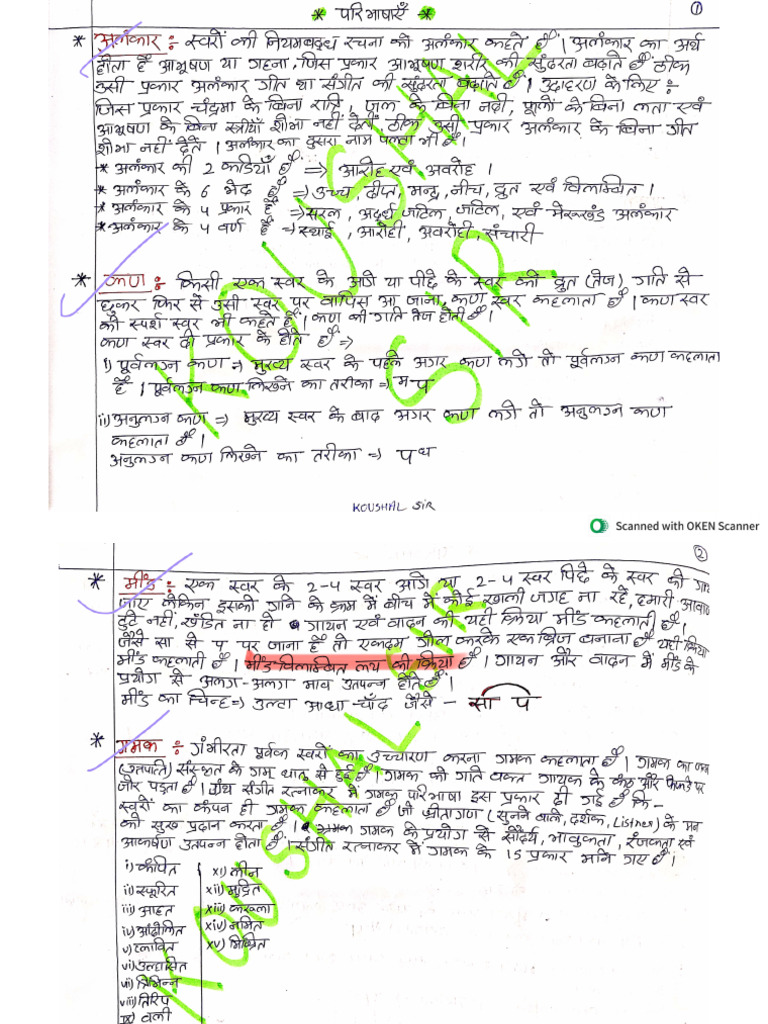 * परिभाषाएँ *
①
* अलंकार :- स्वरों की नियमबद्ध रचना को अलंकार कहते हैं। अलंकार का अर्थ
होता है आभूषण या गहना, जिस प्रकार आभूषण शरीर की सुंदरता बढ़ाते हैं ठीक
उसी प्रकार अलंकार गीत या संगीत की सुंदरता बढ़ाते हैं। उदाहरण के लिए :-
जिस प्रकार चंद्रमा के बिना रात्रि, जल के बिना नदी, फूलों के बिना लता एवं
आभूषण के बिना स्त्रीयाँ शोभा नहीं देती ठीक उसी प्रकार अलंकार के बिना गीत
शोभा नहीं देते। अलंकार का दुसरा नाम पल्टा भी है।
* अलंकार की 2 कडियाँ हैं => आरोह एवं अवरोह।
* अलंकार के 6 भेद हैं => उच्च, दीप्त, मन्द्र, नीच, द्रुत एवं विलाम्बित।
* अलंकार के 4 प्रकार हैं => सरल, अर्द्ध जटिल, जटिल, एवं मेरूखंड अलंकार
* अलंकार के 4 वर्ण हैं => स्थाई, आरोही, अवरोही, संचारी
* कण :- किसी एक स्वर के आगे या पीछे के स्वर को द्रुत (तेज) गति से
छुकर फिर से उसी स्वर पर वापिस आ जाना, कण स्वर कहलाता है। कण स्वर
को स्पर्श स्वर भी कहते हैं। कण की गति तेज होती है।
कण स्वर दो प्रकार के होते हैं =>
i) पूर्वलग्न कण => मुख्य स्वर के पहले अगर कण लगे तो पूर्वलग्न कण कहलाता
है। पूर्वलग्न कण लिखने का तरीका => म प
ii) अनुलग्न कण => मुख्य स्वर के बाद अगर कण लगे तो अनुलग्न कण
कहलाता है।
अनुलग्न कण लिखने का तरीका => प ध
KOUSHAL SIR
KOUSHAL SIR
Scanned with OKEN Scanner
②
* मींड :- एक स्वर के 2-4 स्वर आगे या 2-4 स्वर पिछे के स्वर को
जाए लेकिन इसकी गति के क्रम में बीच में कोई खाली जगह ना रहे, हमारी आवाज
टुटे नहीं, खंडित ना हो गायन एवं वादन की यही क्रिया मींड कहलाती है।
जैसे सा से प पर जाना है तो एकदम गोल करके एक ब्रिज बनाना है यही क्रिया
मींड कहलाती है। मींड विलाम्बित लय की क्रिया है। गायन और वादन में मींड के
प्रयोग से अलग-अलग भाव उतपन्न होते हैं।
मींड का चिन्ह => उल्टा आधा-चाँद जैसे - सा प
* गमक :- गंभीरता पूर्वक स्वरों का उच्चारण करना गमक कहलाता है। गमक का
(उतपति) संस्कृत के गम् धातु से हुई है। गमक की गाते वक्त गायक के कंठ और फेफड़े पर
जोर पड़ता है। ग्रंथ संगीत रत्नाकर में गमक परिभाषा इस प्रकार दी गई है कि -
स्वरों का कंपन ही गमक कहलाता है जो श्रोतागण (सुनने वाले, दर्शक, Listner) के मन
को सुख प्रदान करता है। गमक के प्रयोग से सौंदर्य, भावुकता, रंजकता एवं
आकर्षण उतपन्न होता है। संगीत रत्नाकर में गमक के 15 प्रकार माने गए हैं।
i) कंपित
ii) स्फूरित
iii) आहत
iv) आंदोलित
v) प्लावित
vi) उल्हासित
vii) त्रिभिन्न
viii) तिरिप
ix) वली
xi) लीन
xii) मुद्रित
xiii) करूला
xiv) नमित
xv) मिश्रित
KOUSHAL SIR